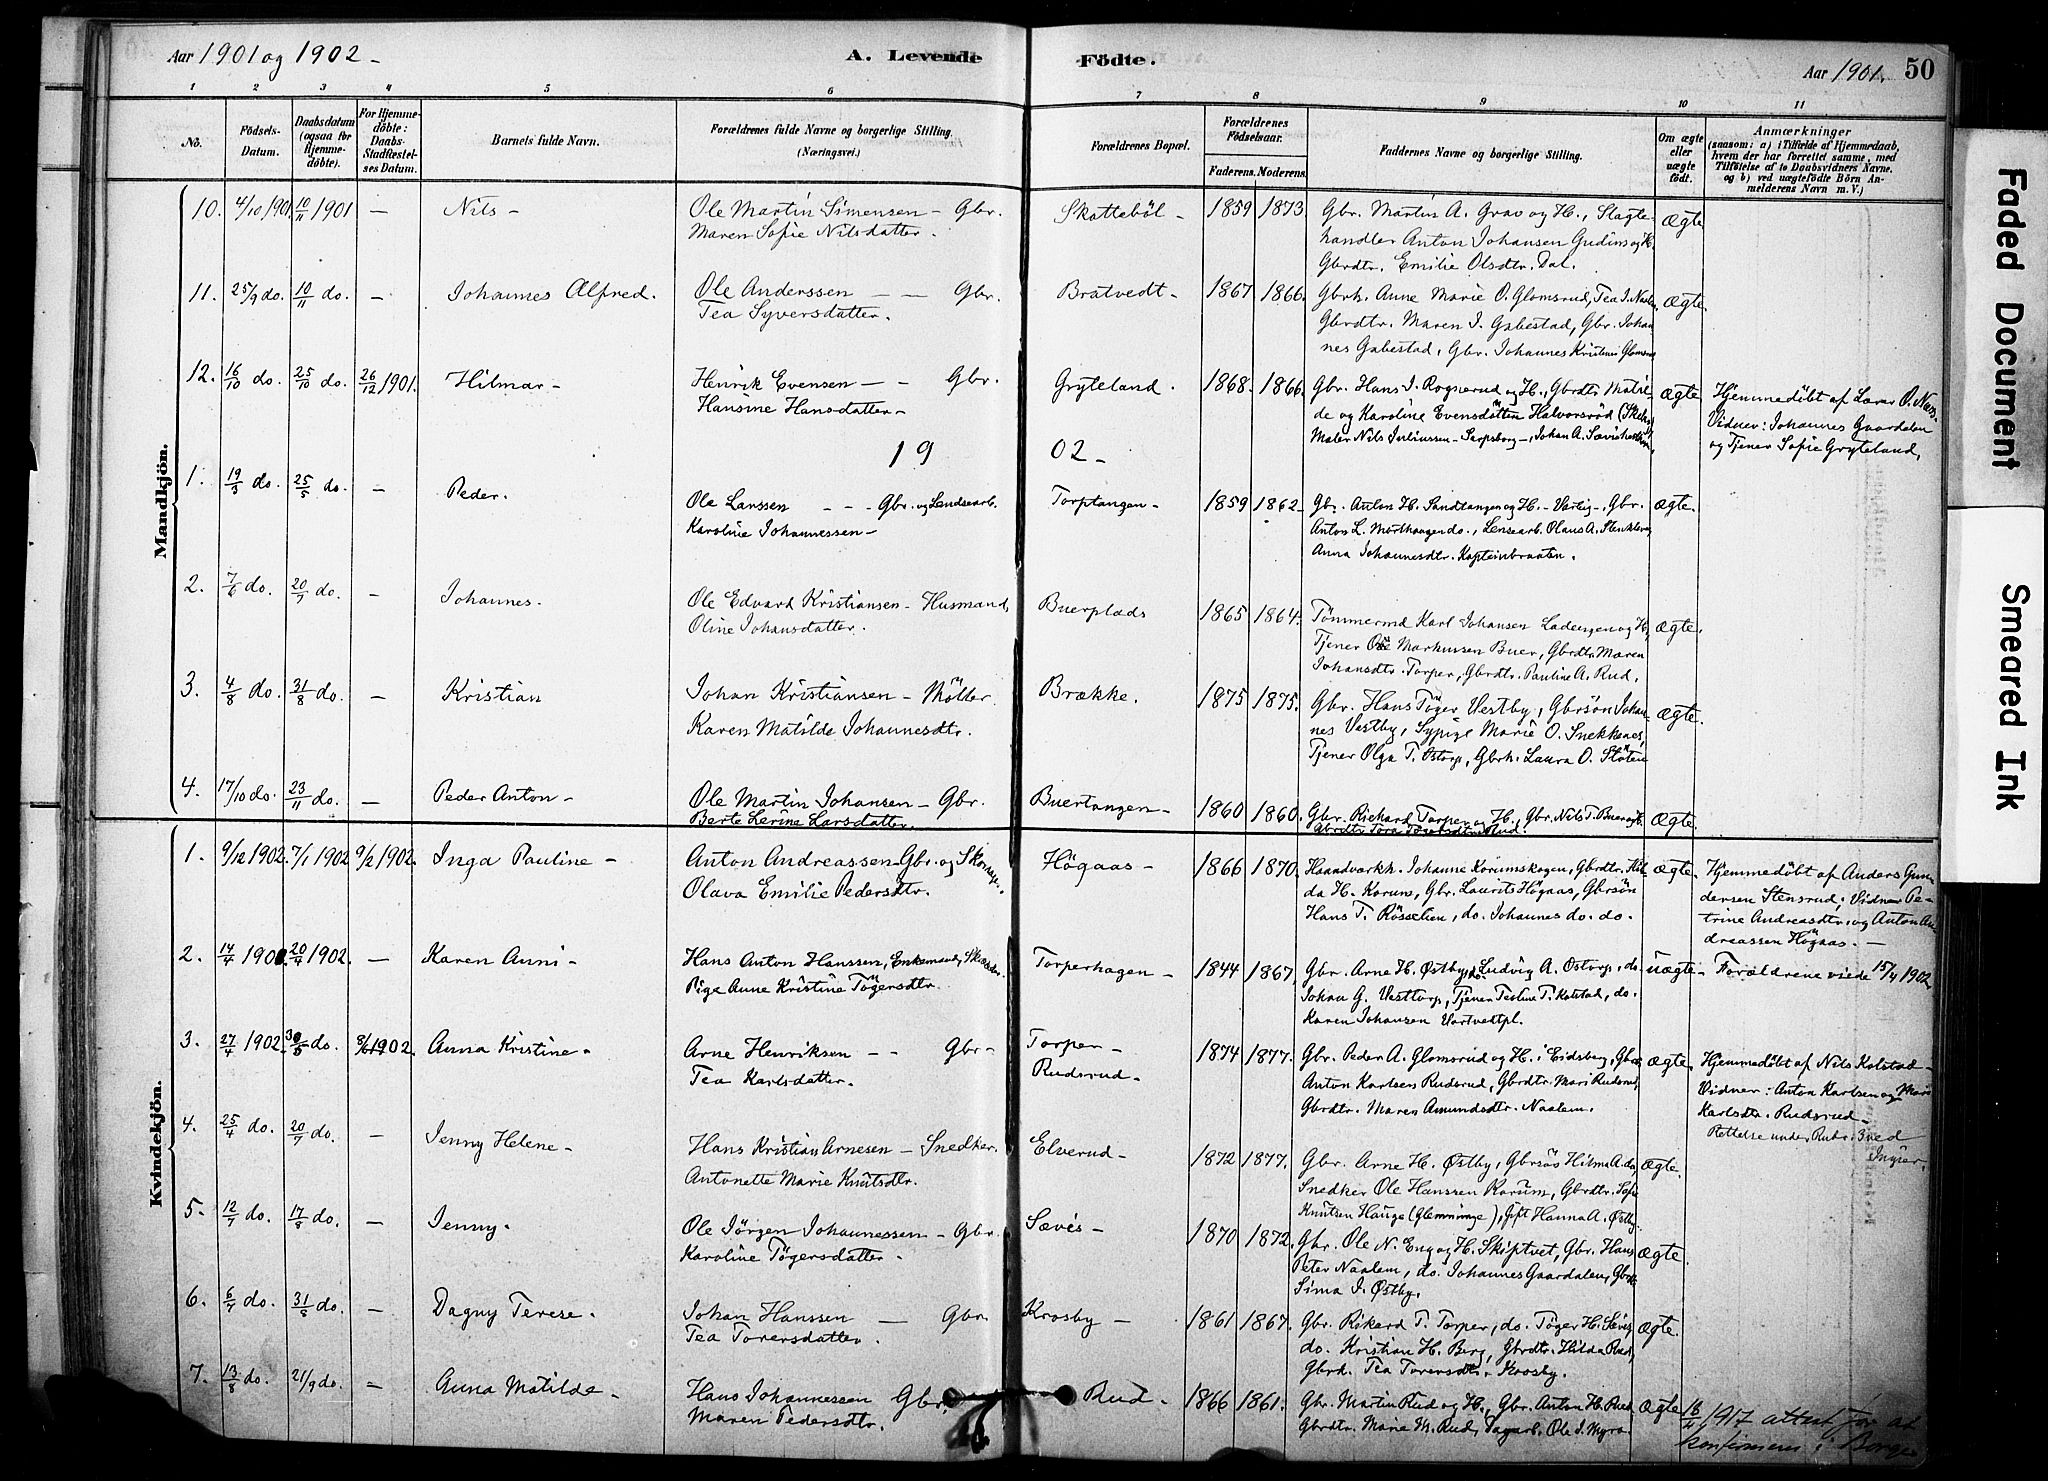 Aar 1901 og 1902 -
A. Levende Födte.
Aar 1901. 50
1 2 3 4 5 6 7 8 9 10 11
No.
Födsels-Datum.
Daabsdatum (ogsaa for Hjemme-döbte).
For Hjemme-döbte: Daabs-Stadfæstel-ses Datum.
Barnets fulde Navn.
Forældrenes fulde Navne og borgerlige Stilling.
(Næringsvei.)
Forældrenes Bopæl.
Forældrenes Födselsaar.
Faderens. Moderens.
Faddernes Navne og borgerlige Stilling.
Om ægte eller uægte födt.
Anmærkninger
(saasom: a) i Tilfælde af Hjemmedaab, hvem der har forrettet samme, med Tilföielse af to Daabsvidners Navne. og b) ved uægtefödte Börn An-melderens Navn m. V.)
Mandkjön.
10. 4/10 1901. 10/11 1901 — Nils - Ole Martin Simensen - Gbr. Skatteböl - 1859 1873. Gbr. Martin A. Grav og H., Slagte- ægte
Maren Sofie Nilsdatter. handler Anton Johansen Gudim og H.
Gbrdtr. Emilie Olsdtr. Dal.
11. 25/9 do. 10/11 do. — Johannes Alfred. Ole Anderssen — Gbr. Bratvedt - 1867 1866. Gbrk. Anne Marie O. Glomsrud, Tea I. Naalem. ægte.
Tea Syversdatter. Gbrdtr. Maren I. Gabestad, Gbr. Johan
nes Gabestad, Gbr. Johannes Kristians Glomsrud
12. 16/10 do. 25/10 do. 26/12 1901. Hilmar - Henrik Evensen — Gbr. Gryteland. 1868. 1866. Gbr. Hans I. Rognerud og H., Gbrdtr Matil- ægte Hjemmedöbt af Lærer O. Næss.
Hansine Hansdatter - de og Karoline Evensdöttre Halvorsröd Vidner: Johannes Gaardalen
Maler Nils Juliussen - Sarpsborg -, Johan A. og Tjener Sofie Gryteland.
19 02 -
1. 19/3 do. 25/5 do. — Peder. Ole Larssen - - - Gbr. og Lendsearb. Torptangen - 1859 1862 Gbr. Anton H. Sandtangen og H. - Vartig -, Gbr. ægte.
Karoline Johannessen - Anton L. Morthaugen do., Lensearb. Olaus A.
Anna Johannesdtr. Kapteinbraaten.
2. 7/6 do. 20/7 do. — Johannes. Ole Edvard Kristiansen - Husmand, Buerplads 1865 1864. Tömmermd Karl Johansen Ladengen og H, ægte.
Oline Johansdatter. Tjener Ole Markussen Buer, Gbrdtr. Maren
Johansdtr. Torper, Gbrdtr. Pauline A. Rud.
3. 4/8 do. 31/8 do. — Kristian Johan Kristiansen - Möller. Brække. 1875 1875. Gbr. Hans Töger Vestby, Gbrsön Johan- ægte.
Karen Matilde Johannesdtr. nes Vestby, Sypige Marie O. Snekkenes,
Tjener Olga T. Östorp, Gbrk. Laura O. Slöten
4. 17/10 do. 23/11 do. — Peder Anton - Ole Martin Johansen - Gbr. Buertangen - 1860 1860. Gbr. Rickard Torper og H., Gbr. Nils T. Buer ægte.
Berte Lerine Larsdatter. Gbrdtr Tora Tögersdtr Rud.
Kvindekjön.
1. 9/12 1902. 7/1 1902 9/2 1902. Inga Pauline - Anton Andreassen Gbr. og Skomag. Högaas - 1866 1870. Haandværkk. Johanne Korumskogen, Gbrdtr. Hil- ægte. Hjemmedöbt af Anders Gun-
Olava Emilie Pedersdtr. da H. Korum, Gbr. Laurits Högaas, Gbrsön dersen Stensrud; Vidner Pe-
Hans T. Rösselien, do. Johannes do. do. trine Andreasdtr. og Anton An-
dreassen Högaas. —
2. 14/4 190 20/4 1902. — Karen Anni - Hans Anton Hanssen, Enkemand, Torperhagen - 1844 1867 Gbr. Arne H. Östby, Ludvig A. Östorp, do. uægte - Forældrene viede 15/4 1902
Pige Anne Kristine Tögersdtr. Johan G. Vesttorp, Tjener Teoline T. Kolstad, do.
Karen Johansen Vartvetpl.
3. 27/4 1902. 30/5 do. 8/6 1902. Anna Kristine - Arne Henriksen — Gbr - Torper - 1874 1877. Gbr. Peder A. Glomsrud og H. i Eidsberg, Gbr. ægte. Hjemmedöbt af Nils Kolstad -
Tea Karlsdatter. Rudsrud - Anton Karlsen Rudsrud, Gbrdtr. Mari Rudsrud, Vidner: Anton Karlsen og Mari
Gbrdtr. Maren Amundsdtr. Naalem. Karlsdtr. Rudsrud -
Rettelse under Rubr. 3 ved
4. 25/4 do. 20/7 do. — Jenny Helene - Hans Kristian Arnesen - Snedker. Elverud - 1872 1877. Gbr. Arne H. Östby, Gbrsös Hilma A. do. ægte.
Antonette Marie Knutsdtr. Snedker Ole Hanssen Korum, Gbrdtr. Sofie
Knutsen Hauge (Glemminge), Gift Hanna A. Östby.
5. 12/7 do. 17/8 do. — Jenny. Ole Jörgen Johannessen - Gbr. Sævis - 1870 1872. Gbr. Ole N. Eng og H. Skiptvet, Gbr. Hans ægte.
Karoline Tögersdatter - Peter Naalem, do. Johannes Gaardalen, Gbrk.
Sima I. Östby.
6. 6/7 do. 31/8 do. — Dagny Terese. Johan Hanssen — Gbr. Krosby - 1861 1867. Gbr. Rikard T. Torper, do. Töger H. Sævis, ægte.
Tea Torersdatter. do. Kristian H. Berg, Gbrdtr. Hilda Rud,
Gbrk. Tea Torersdtr. Krosby.
7. 13/8 do. 21/9 do. — Anna Matilde - Hans Johannessen Gbr. Rud - 1866 1861. Gbr. Martin Rud og H., Gbr. Anton H. Rud, ægte 16/4 1917 attest for at
Maren Pedersdtr. Gbrdtr. Marie M. Rud, Dagarb. Ole J. Myra. konfirmeres i Borge
Faded Document
Smeared Ink